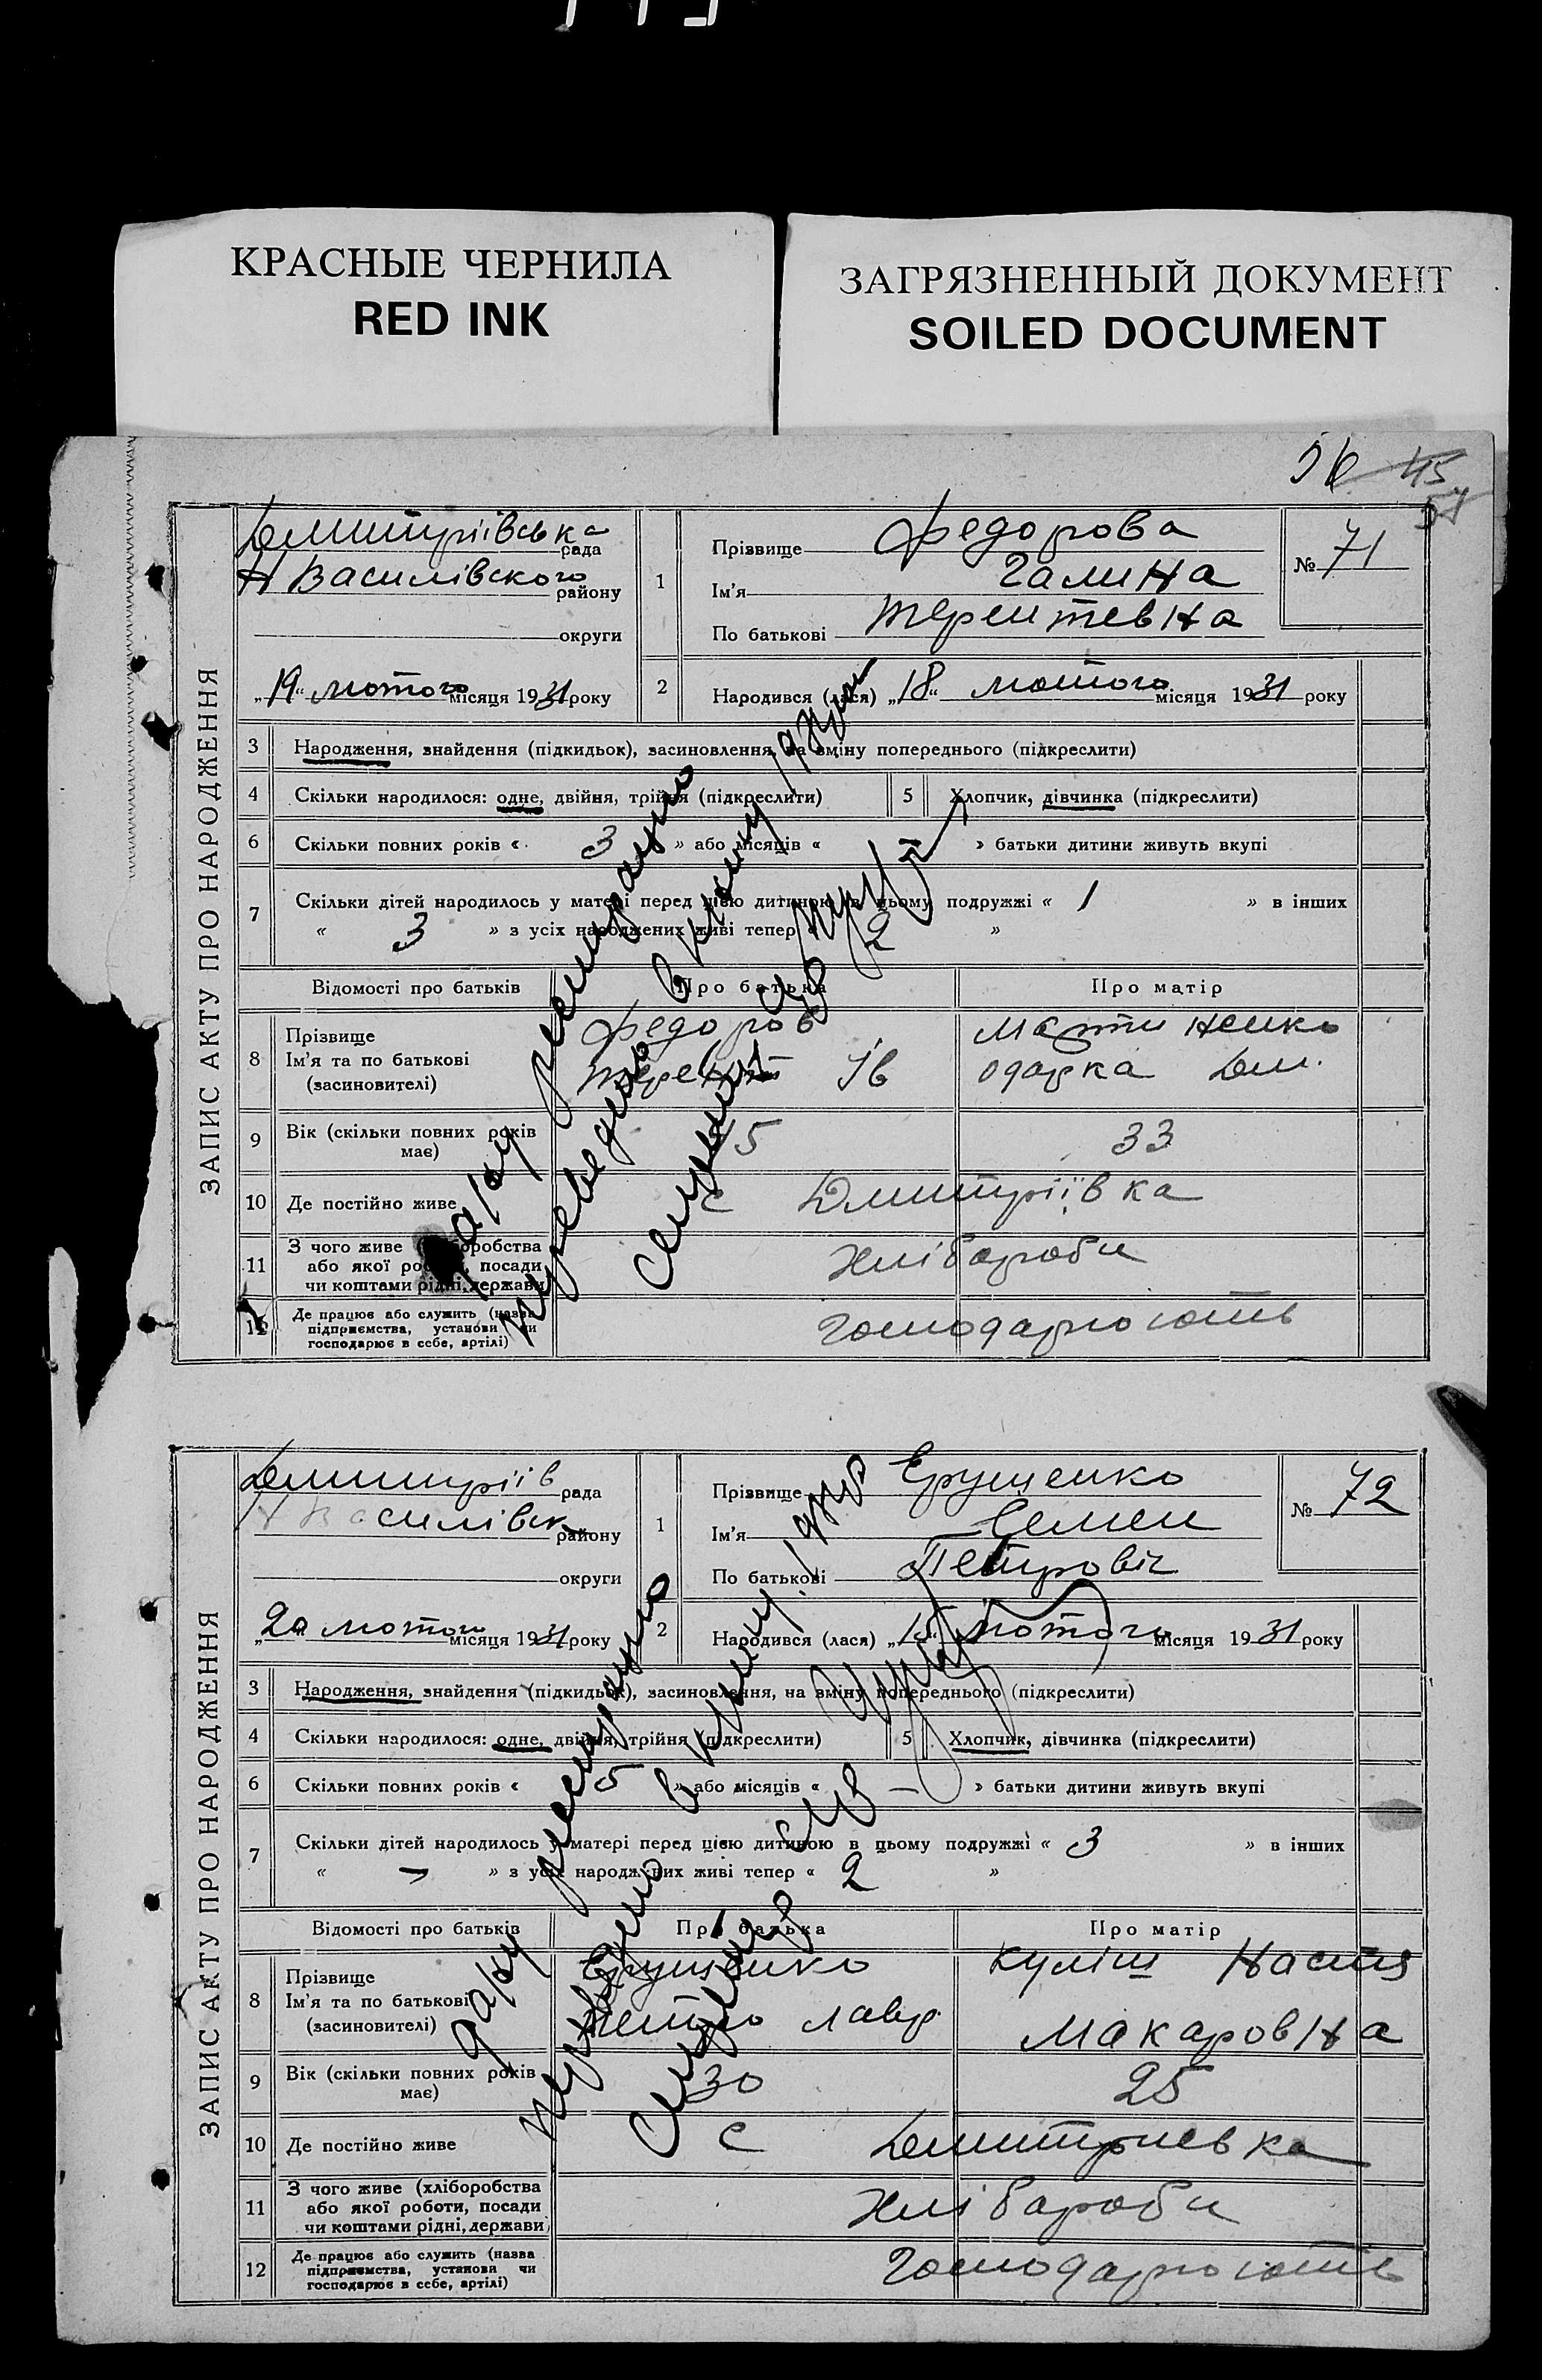 КРАСНЫЕ ЧЕРНИЛА
RED INK
ЗАГРЯЗНЕННЫЙ ДОКУМЕНТ
SOILED DOCUMENT
56 45
57
ЗАПИС АКТУ ПРО НАРОДЖЕННЯ
Дмитріівська рада
Н Василівского району
округи
„19“ лютого місяця 1931 року
1
Прізвище Федорова
Ім'я Галина
По батькові Терентевна
№ 71
2 Народився (лася) „18“ лютого місяця 1931 року
3 Народження, знайдення (підкидьок), засиновлення, на зміну попереднього (підкреслити)
4 Скільки народилося: одне, двійня, трійня (підкреслити) 5 Хлопчик, дівчинка (підкреслити)
6 Скільки повних років « 3 » або місяців « – » батьки дитини живуть вкупі
7 Скільки дітей народилось у матері перед цією дитиною в цьому подружжі « 1 » в інших
« 3 » з усіх народжених живі тепер « 2 »
Відомості про батьків Про батька Про матір
8 Прізвище Ім'я та по батькові (засиновителі)
Федоров Мартиненко
Терентій Ів Одарка Дм.
9 Вік (скільки повних років має) 5 33
10 Де постійно живе с Дмитріївка
11 З чого живе (хліборобства або якої роботи, посади чи коштами рідні, держави) Хлібароби
12 Де працює або служить (назва підприємства, установи чи господарює в себе, артілі) Господарюють
переведено в книгу
ЗАПИС АКТУ ПРО НАРОДЖЕННЯ
Дмитріів рада
Н Василівск району
округи
„20“ лютого місяця 1931 року
1
Прізвище Ерущенко
Ім'я Семен
По батькові Петровіч
№ 72
2 Народився (лася) „15“ лютого місяця 1931 року
3 Народження, знайдення (підкидьок), засиновлення, на зміну попереднього (підкреслити)
4 Скільки народилося: одне, двійня, трійня (підкреслити) 5 Хлопчик, дівчинка (підкреслити)
6 Скільки повних років « 5 » або місяців « – » батьки дитини живуть вкупі
7 Скільки дітей народилось у матері перед цією дитиною в цьому подружжі « 3 » в інших
« – » з усіх народжених живі тепер « 2 »
Відомості про батьків Про батька Про матір
8 Прізвище Ім'я та по батькові (засиновителі)
Ерущенко Куліш Настя
Петро Лавр Макаровна
9 Вік (скільки повних років має) 30 25
10 Де постійно живе с Дмитриевка
11 З чого живе (хліборобства або якої роботи, посади чи коштами рідні, держави) Хлібароби
12 Де працює або служить (назва підприємства, установи чи господарює в себе, артілі) Господарюють
переведено в книгу